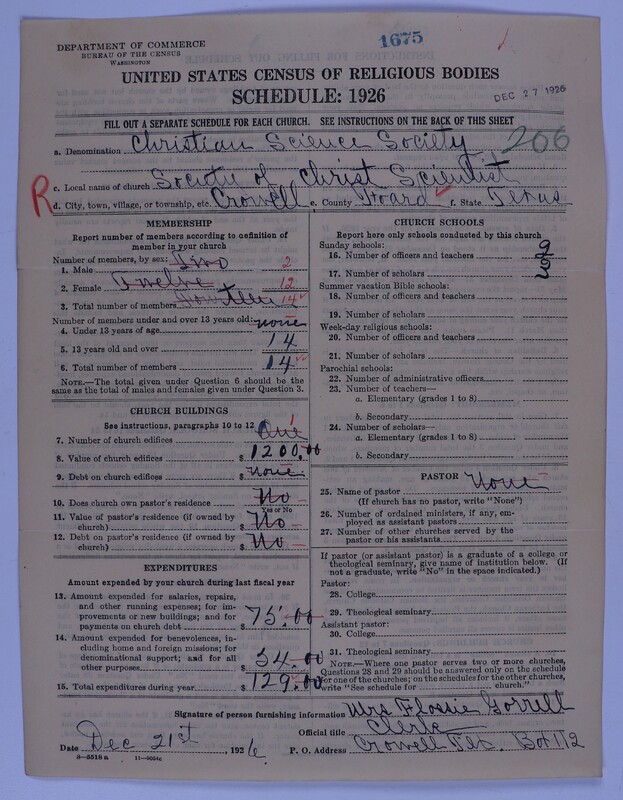 DEPARTMENT OF COMMERCE
BUREAU OF THE CENSUS
WASHINGTON
1675
UNITED STATES CENSUS OF RELIGIOUS BODIES
SCHEDULE: 1926
DEC 27 1926
FILL OUT A SEPARATE SCHEDULE FOR EACH CHURCH. SEE INSTRUCTIONS ON THE BACK OF THIS SHEET
a. Denomination Christian Science Society 206
c. Local name of church Society of Christ Scientist
R d. City, town, village, or township, etc. Crowell e. County Foard f. State Texas
MEMBERSHIP
Report number of members according to definition of member in your church
Number of members, by sex:
1. Male Two 2
2. Female Twelve 12
3. Total number of members Fourteen 14
Number of members under and over 13 years old:
4. Under 13 years of age none
5. 13 years old and over 14
6. Total number of members 14
NOTE.—The total given under Question 6 should be the
same as the total of males and females given under Question 3.
CHURCH BUILDINGS
See instructions, paragraphs 10 to 12
7. Number of church edifices One 1
8. Value of church edifices $ 1200.00
9. Debt on church edifices $ none
10. Does church own pastor's residence No
Yes or No
11. Value of pastor's residence (if owned by
church) $ No
12. Debt on pastor's residence (if owned by
church) $ No
EXPENDITURES
Amount expended by your church during last fiscal year
13. Amount expended for salaries, repairs,
and other running expenses; for im-
provements or new buildings; and for
payments on church debt $ 75.00
14. Amount expended for benevolences, in-
cluding home and foreign missions; for
denominational support; and for all
other purposes $ 54.00
15. Total expenditures during year $ 129.00
CHURCH SCHOOLS
Report here only schools conducted by this church
Sunday schools:
16. Number of officers and teachers
17. Number of scholars
Summer vacation Bible schools:
18. Number of officers and teachers
19. Number of scholars
Week-day religious schools:
20. Number of officers and teachers
21. Number of scholars
Parochial schools:
22. Number of administrative officers
23. Number of teachers—
a. Elementary (grades 1 to 8)
b. Secondary
24. Number of scholars—
a. Elementary (grades 1 to 8)
b. Secondary
PASTOR
25. Name of pastor None
(If church has no pastor, write "None")
26. Number of ordained ministers, if any, em-
ployed as assistant pastors
27. Number of other churches served by the
pastor or his assistants
If pastor (or assistant pastor) is a graduate of a college or
theological seminary, give name of institution below. (If
not a graduate, write "No" in the space indicated.)
Pastor:
28. College
29. Theological seminary
Assistant pastor:
30. College
31. Theological seminary
NOTE.—Where one pastor serves two or more churches,
Questions 28 and 29 should be answered only on the schedule
for one of the churches; on the schedules for the other churches,
write "See schedule for church."
Signature of person furnishing information Mrs Flossie Gorrell
Official title Clerk
Date Dec 21st, 1926 P. O. Address Crowell Tex. Box 112
8—5518 a